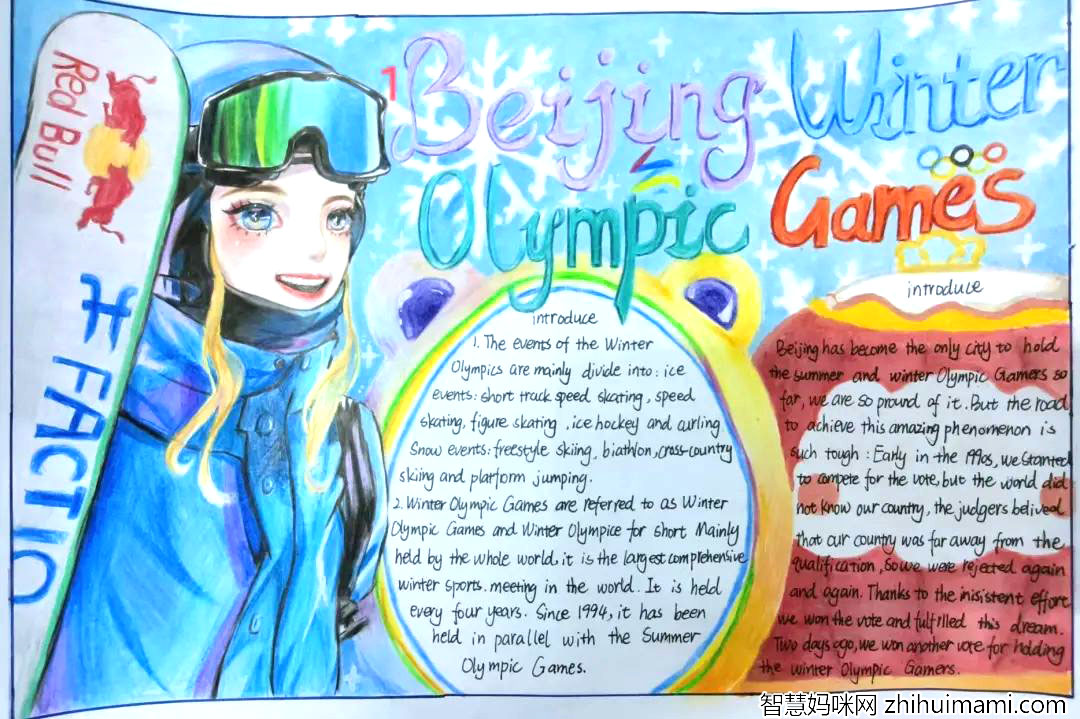 Red Bull
#FACTIO
1
Beijing Winter
Olympic Games
introduce
1. The events of the Winter
Olympics are mainly divide into: ice
events: short track speed skating, speed
skating, figure skating , ice hockey and curling
Snow events: freestyle skiing, biathlon, cross-country
skiing and platform jumping.
2. Winter Olympic Games are referred to as Winter
Olympic Games and Winter Olympice for short Mainly
held by the whole world, it is the largest comprehensive
winter sports. meeting in the world. It is held
every four years. Since 1994, it has been
held in parallel with the Summer
Olympic Games.
introduce
Beijing has become the only city to hold
the summer and winter Olympic Gamers so
far, we are so pround of it. But the road
to achieve this amazing phenomenon is
such tough : Early in the 1990s, we stanted
to compete for the vote, but the world did
not know our country, the judgers belived
that our country was far away from the
qualification, so we were rejected again
and again. Thanks to the inisistent effort
we won the vote and fulfilled this dream.
Two days ago, we won another vote for holding
the winter Olympic Gamers.
智慧妈咪网 zhihuimami.com